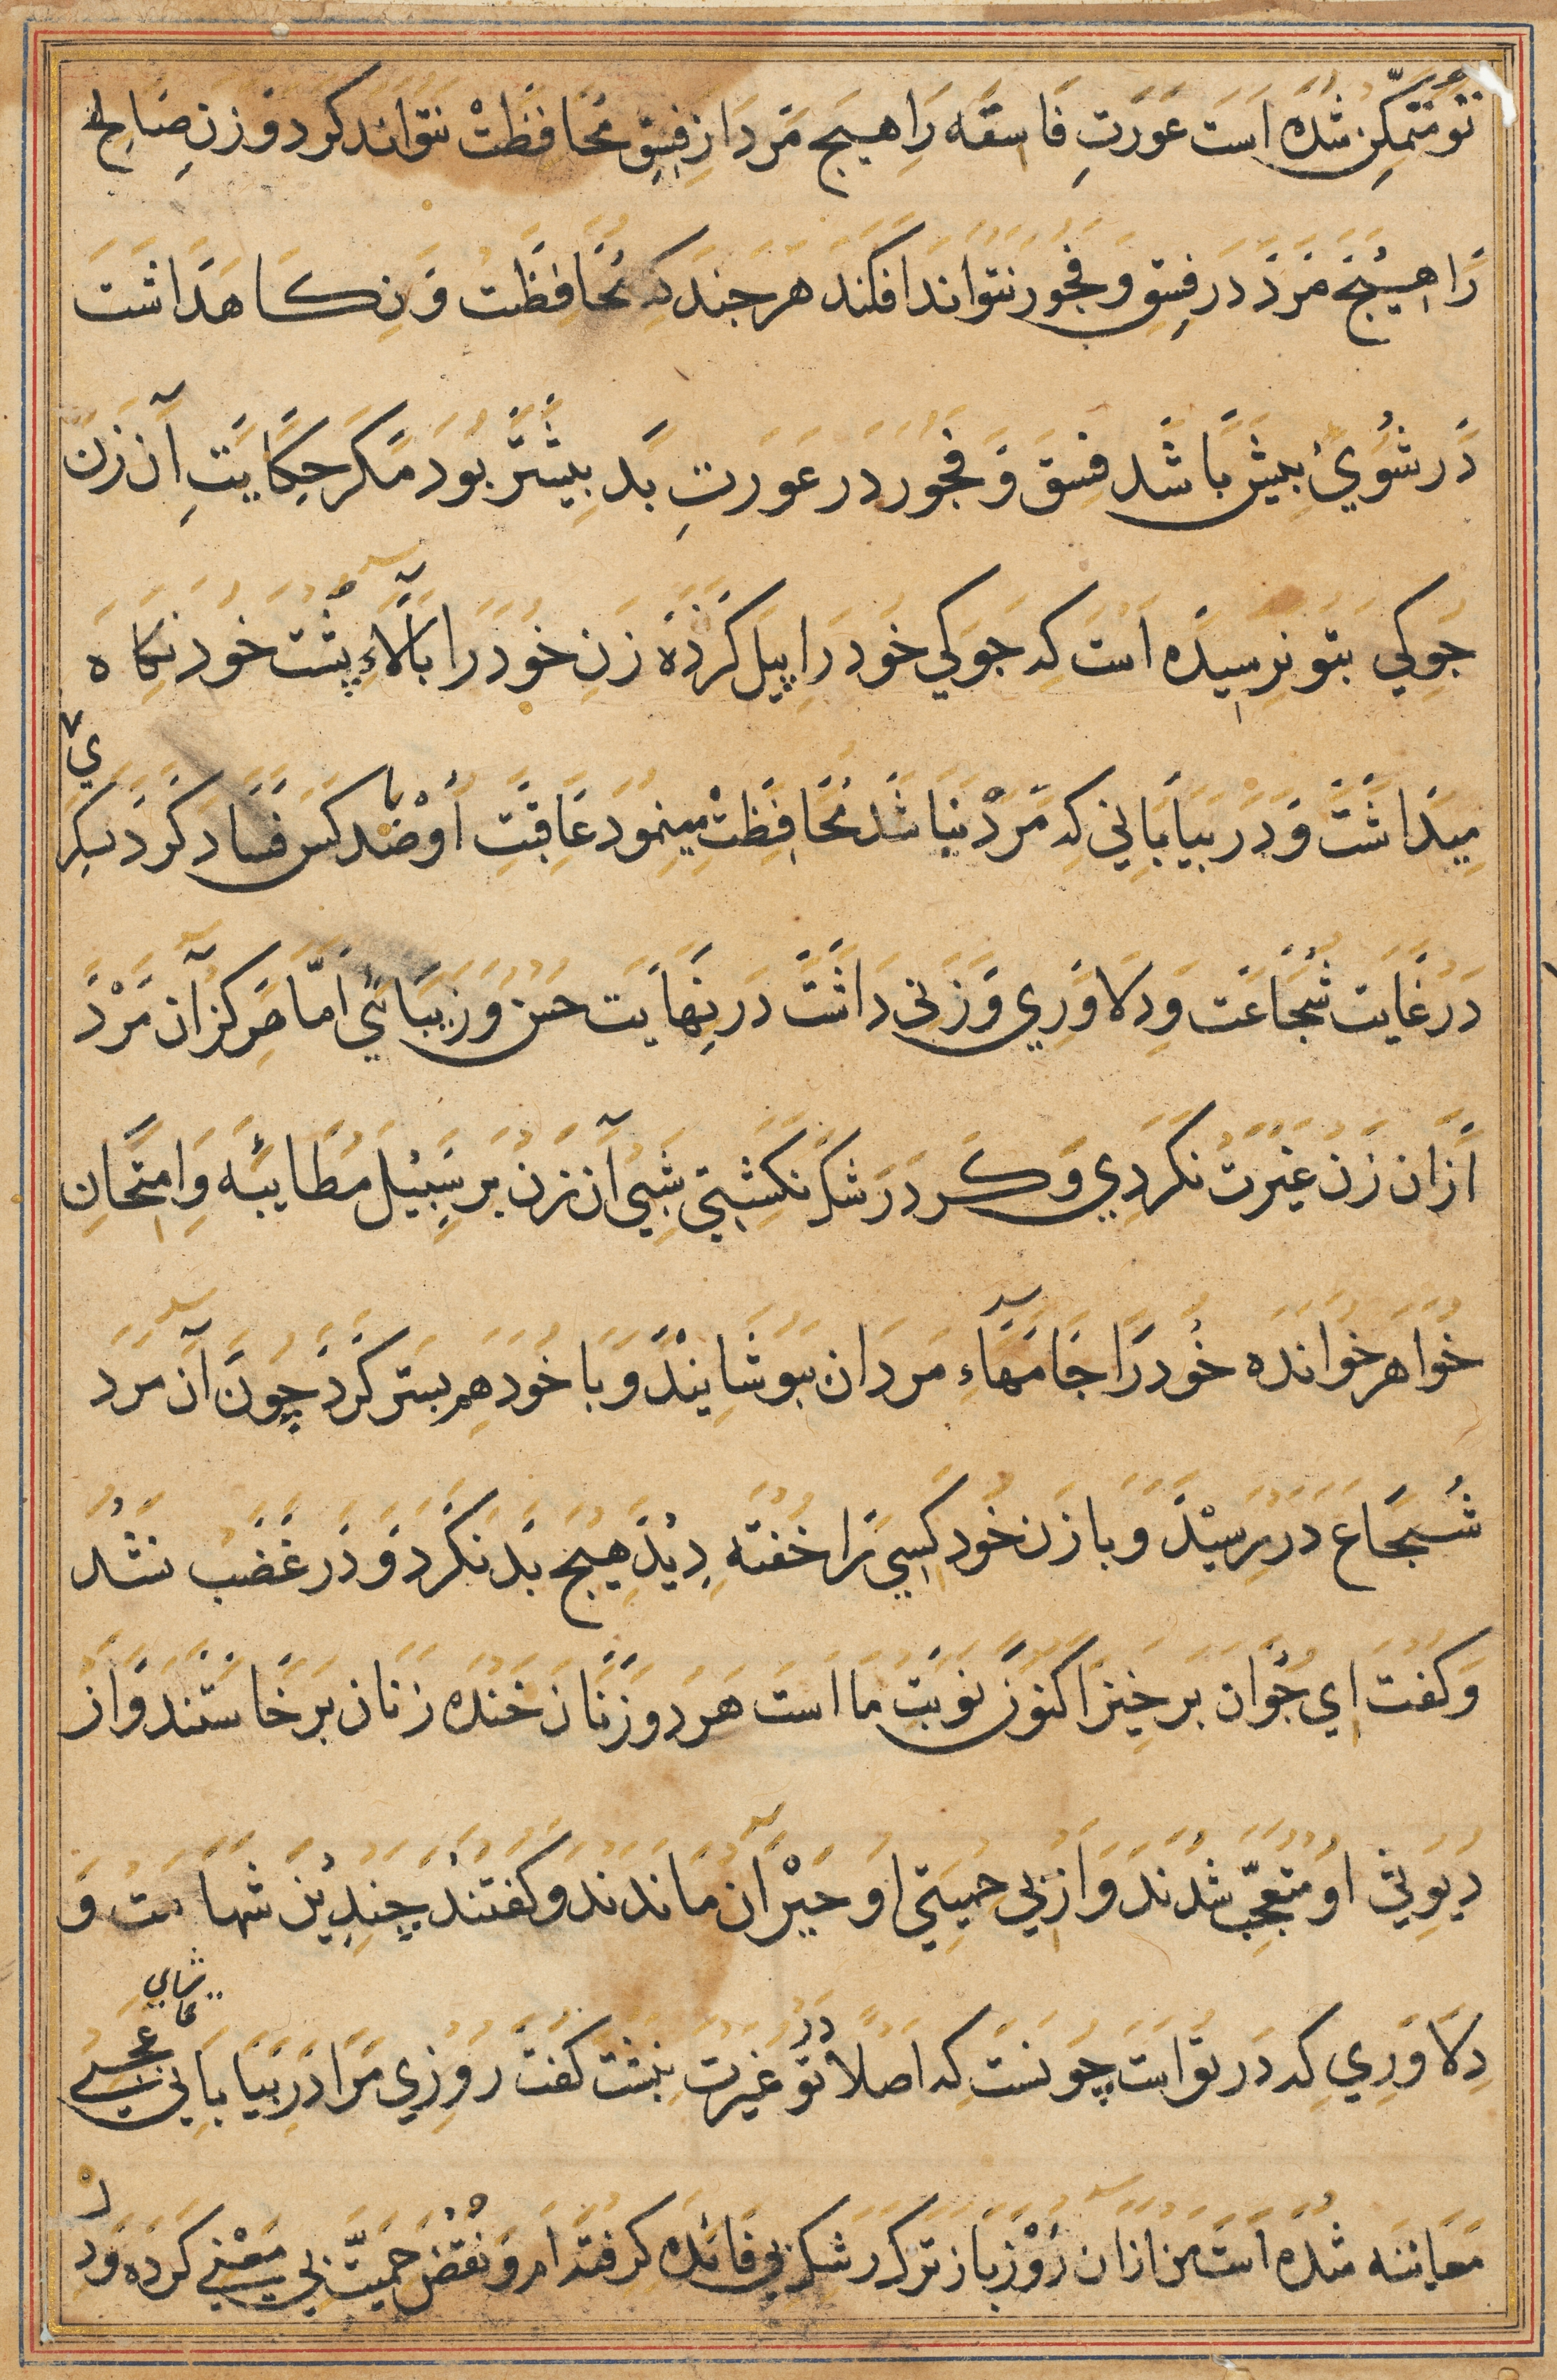 تو متمكن شده است عورت فاسقه را هیچ مرد از فسق محافظت نتواند کرد و زن صالح
را هیچ مرد در فسق و فجور نتواند افکند هر چند که محافظت و نکاهداشت
در شوی بیش باشد فسق و فجور در عورت بد بیشتر بود مکر حکایت آن زن
جوکی بتو نرسیده است که جوکی خود را پیل کرده زن خود را بالاء پشت خود نکاه
میداشت و در بیابانی که مرد نباشد محافظت مینمود عاقبت او با صد کس فساد کرد یکی
در غایت شجاعت و دلاوری و زنی داشت در نهایت حسن و زیبائی اما هرکز آن مرد
از آن زن غیرت نکردی و کرد رشک نکشتی شبی آن زن بر سبیل مطایبه و امتحان
خواهر خوانده خود را جامهاء مردان بپوشانید و با خود هم بستر کرد چون آن مرد
شجاع در رسید و با زن خود کسی را خفته دید هیچ بد نکرد و در غضب نشد
و کفت ای جوان برخیز اکنون نوبت ما است هر دو زنان خنده زنان برخاستند و از
دیوثی او متعجب شدند و از بی حمیتی او حیران ماندند و کفتند چندین شهامت و
دلاوری که در تو است چونست که اصلا در تو غیرت نیست کفت روزی مرا در بیابانی عجبی تماشای
معاینه شده است من از آن روز باز ترک رشک بی فائده کرفته ام و نقض حمیت بی معنی کرده و در